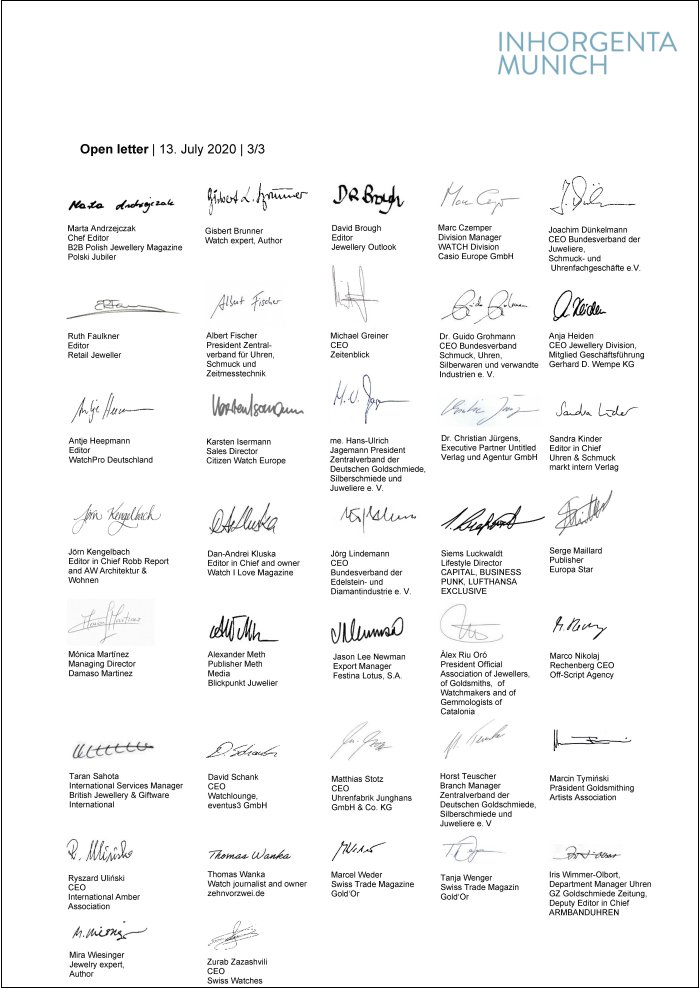 INHORGENTA
MUNICH
Open letter | 13. July 2020 | 3/3
Marta Andrzejczak
Chef Editor
B2B Polish Jewellery Magazine
Polski Jubiler
Gisbert Brunner
Watch expert, Author
DR Brough
David Brough
Editor
Jewellery Outlook
Marc Czemper
Division Manager
WATCH Division
Casio Europe GmbH
Joachim Dünkelmann
CEO Bundesverband der
Juweliere,
Schmuck- und
Uhrenfachgeschäfte e.V.
Ruth Faulkner
Editor
Retail Jeweller
Albert Fischer
Albert Fischer
President Zentral-
verband für Uhren,
Schmuck und
Zeitmesstechnik
Michael Greiner
CEO
Zeitenblick
Dr. Guido Grohmann
CEO Bundesverband
Schmuck, Uhren,
Silberwaren und verwandte
Industrien e. V.
Anja Heiden
CEO Jewellery Division,
Mitglied Geschäftsführung
Gerhard D. Wempe KG
Antje Heepmann
Editor
WatchPro Deutschland
Karsten Isermann
Sales Director
Citizen Watch Europe
me. Hans-Ulrich
Jagemann President
Zentralverband der
Deutschen Goldschmiede,
Silberschmiede und
Juweliere e. V.
Dr. Christian Jürgens,
Executive Partner Untitled
Verlag und Agentur GmbH
Sandra Kinder
Editor in Chief
Uhren & Schmuck
markt intern Verlag
Jörn Kengelbach
Jörn Kengelbach
Editor in Chief Robb Report
and AW Architektur &
Wohnen
Dan-Andrei Kluska
Editor in Chief and owner
Watch I Love Magazine
Jörg Lindemann
CEO
Bundesverband der
Edelstein- und
Diamantindustrie e. V.
Siems Luckwaldt
Lifestyle Director
CAPITAL, BUSINESS
PUNK, LUFTHANSA
EXCLUSIVE
Serge Maillard
Publisher
Europa Star
Mónica Martínez
Managing Director
Damaso Martinez
Alexander Meth
Publisher Meth
Media
Blickpunkt Juwelier
Jason Lee Newman
Export Manager
Festina Lotus, S.A.
Àlex Riu Oró
President Official
Association of Jewellers,
of Goldsmiths, of
Watchmakers and of
Gemmologists of
Catalonia
Marco Nikolaj
Rechenberg CEO
Off-Script Agency
Taran Sahota
International Services Manager
British Jewellery & Giftware
International
David Schank
CEO
Watchlounge,
eventus3 GmbH
Matthias Stotz
CEO
Uhrenfabrik Junghans
GmbH & Co. KG
Horst Teuscher
Branch Manager
Zentralverband der
Deutschen Goldschmiede,
Silberschmiede und
Juweliere e. V
Marcin Tymiński
Präsident Goldsmithing
Artists Association
Ryszard Uliński
CEO
International Amber
Association
Thomas Wanka
Thomas Wanka
Watch journalist and owner
zehnvorzwei.de
Marcel Weder
Swiss Trade Magazine
Gold'Or
Tanja Wenger
Swiss Trade Magazin
Gold'Or
Iris Wimmer-Olbort,
Department Manager Uhren
GZ Goldschmiede Zeitung,
Deputy Editor in Chief
ARMBANDUHREN
Mira Wiesinger
Jewelry expert,
Author
Zurab Zazashvili
CEO
Swiss Watches